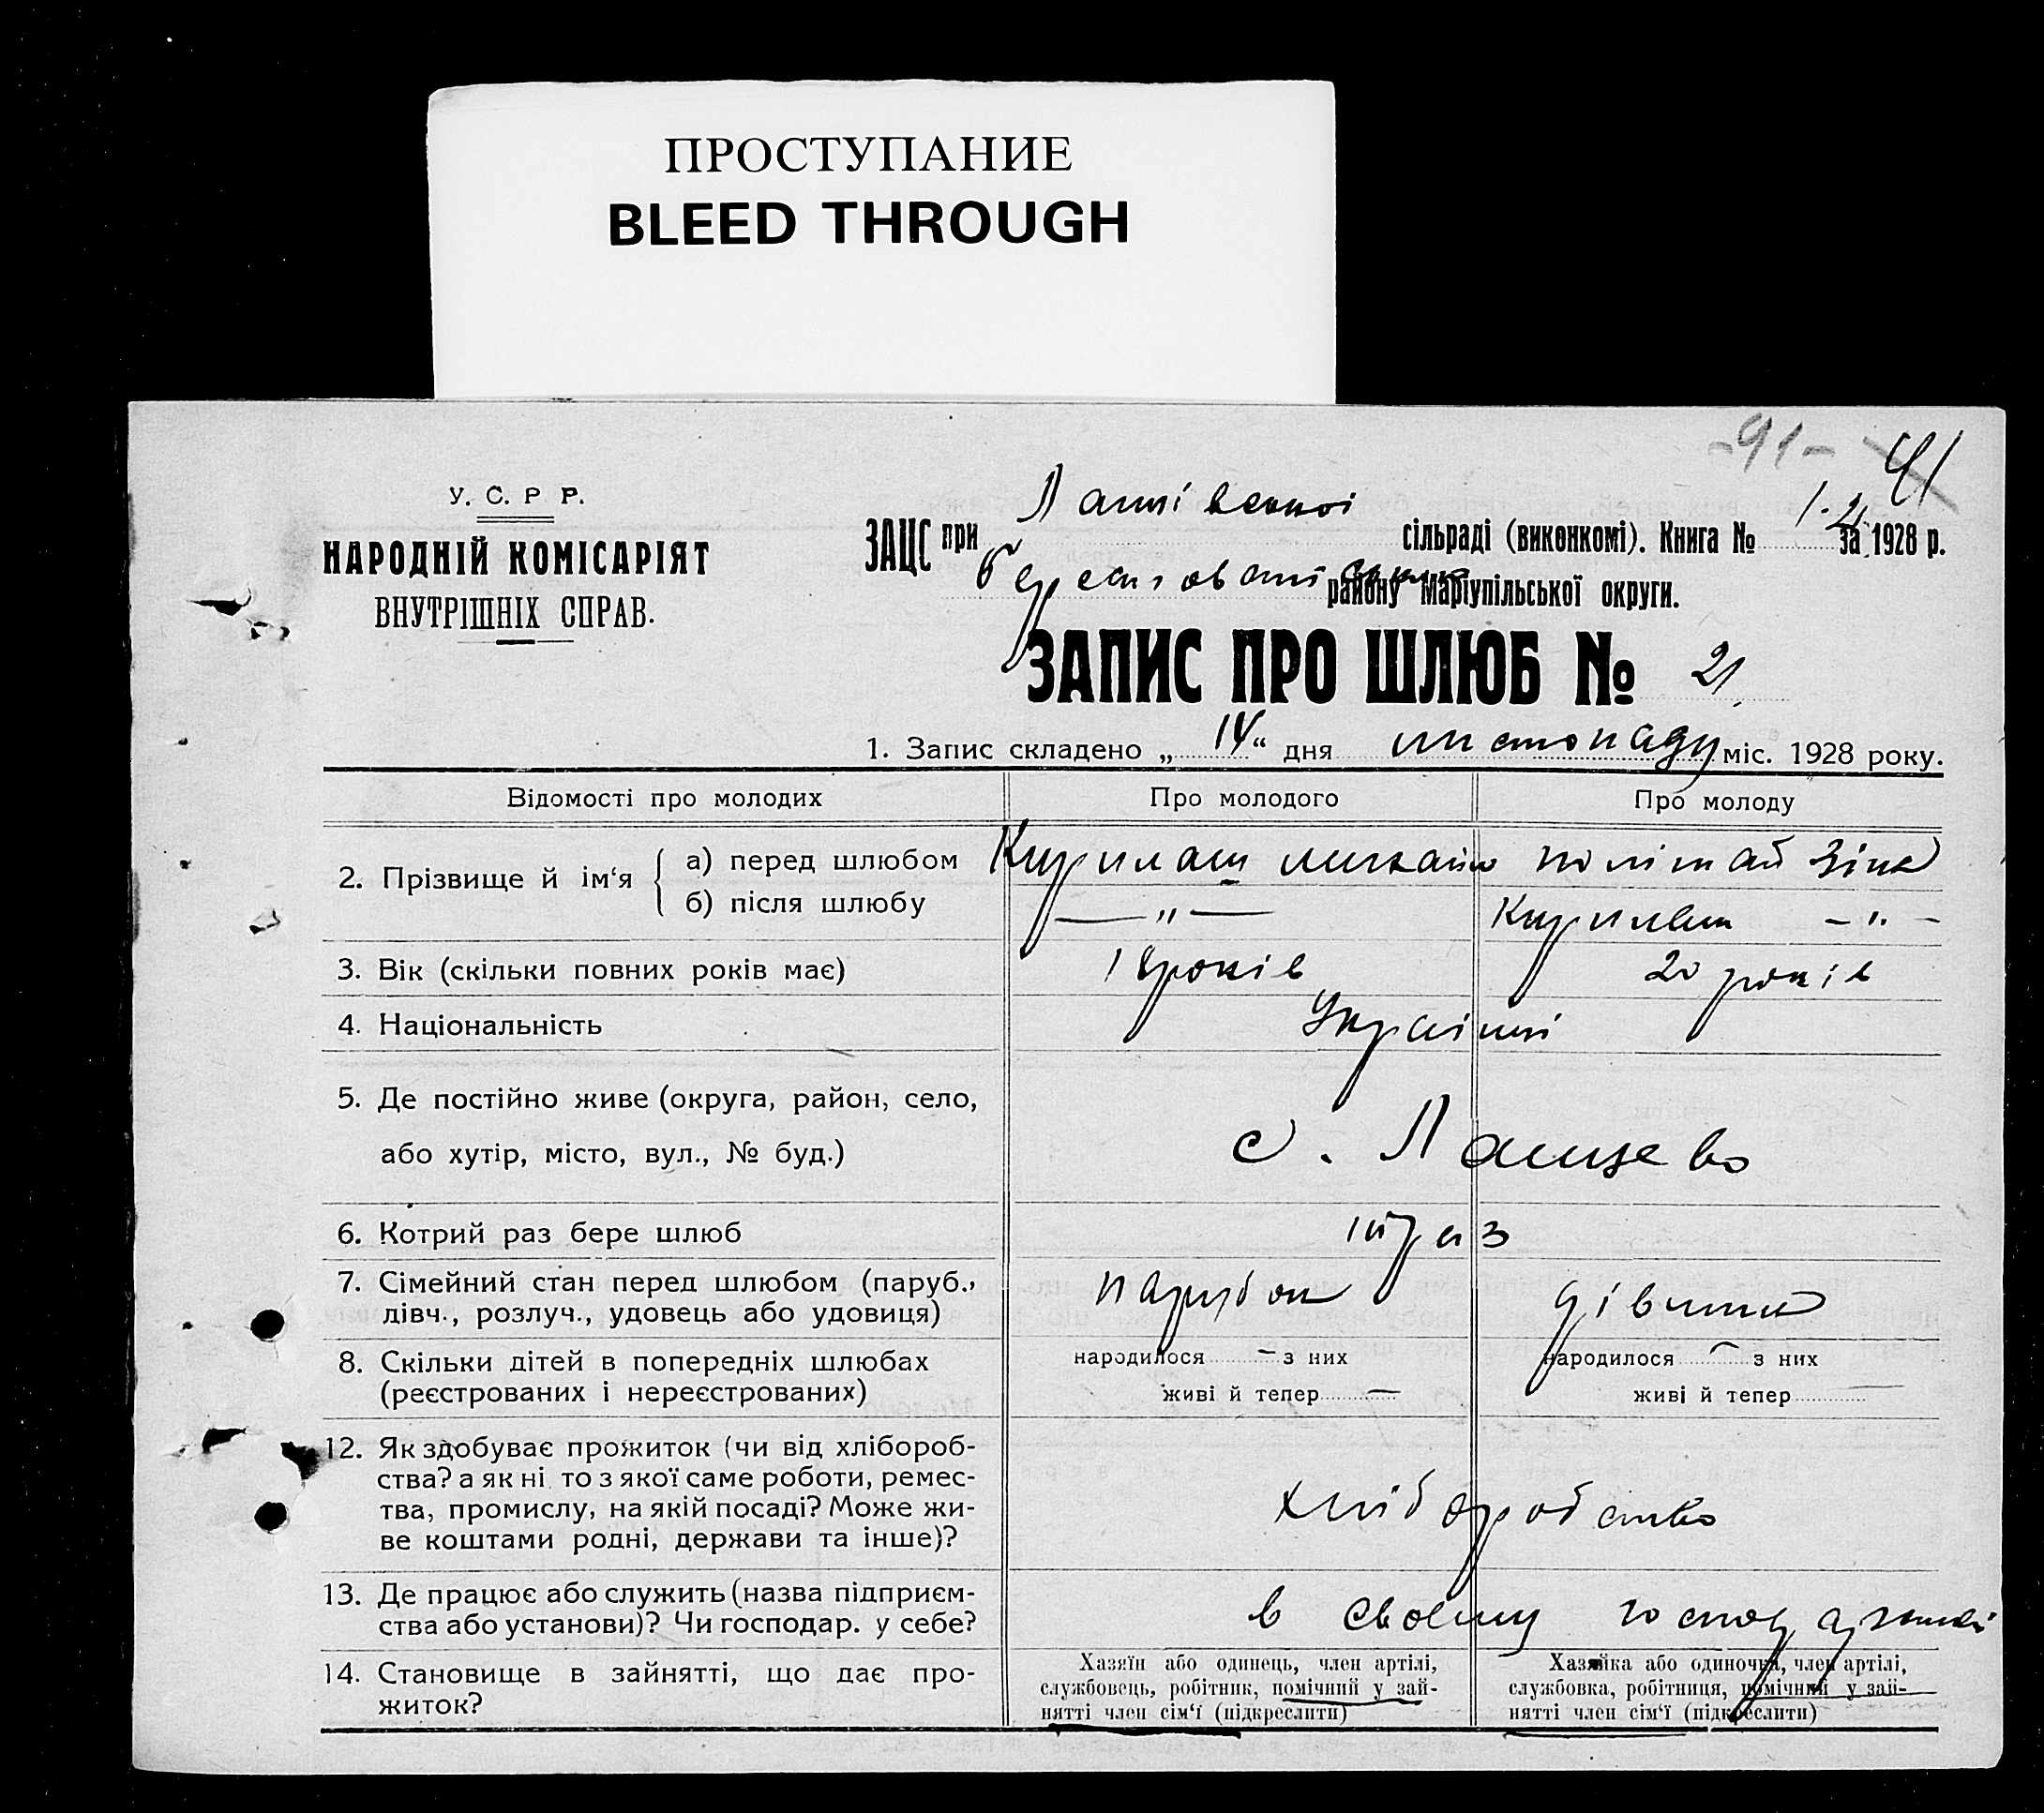 ПРОСТУПАНИЕ
BLEED THROUGH
-91- 91
У. С. Р Р.
НАРОДНІЙ КОМІСАРІЯТ
ВНУТРІШНІХ СПРАВ.
ЗАЦС при сільраді (виконкомі). Книга № 1-2 за 1928 р.
району Маріупільської округи.
ЗАПИС ПРО ШЛЮБ № 21
1. Запис складено „ 14 “ дня листопаду міс. 1928 року.
Відомості про молодих Про молодого Про молоду
2. Прізвище й ім‘я { а) перед шлюбом Кирилаш Михайло Політай Зіна
б) після шлюбу — " — Кирилаш — " —
3. Вік (скільки повних років має) 18 років 20 років
4. Національність Українці
5. Де постійно живе (округа, район, село,
або хутір, місто, вул., № буд.) с.
6. Котрий раз бере шлюб 1й раз
7. Сімейний стан перед шлюбом (паруб., парубок
дівч., розлуч., удовець або удовиця) дівчина
8. Скільки дітей в попередніх шлюбах народилося — з них народилося — з них
(реєстрованих і нереєстрованих) живі й тепер — живі й тепер —
12. Як здобуває прожиток (чи від хлібороб-
ства? а як ні то з якої саме роботи, ремес-
тва, промислу, на якій посаді? Може жи- хліборобство
ве коштами родні, держави та інше)?
13. Де працює або служить (назва підприєм-
ства або установи)? Чи господар. у себе? в своєму господарстві
14. Становище в зайнятті, що дає про-
житок?
Хазяїн або одинець, член артілі,
службовець, робітник, помічний у зай-
нятті член сім‘ї (підкреслити)
Хазяйка або одиночка, член артілі,
службовка, робітниця, помічний у зай-
нятті член сім‘ї (підкреслити)